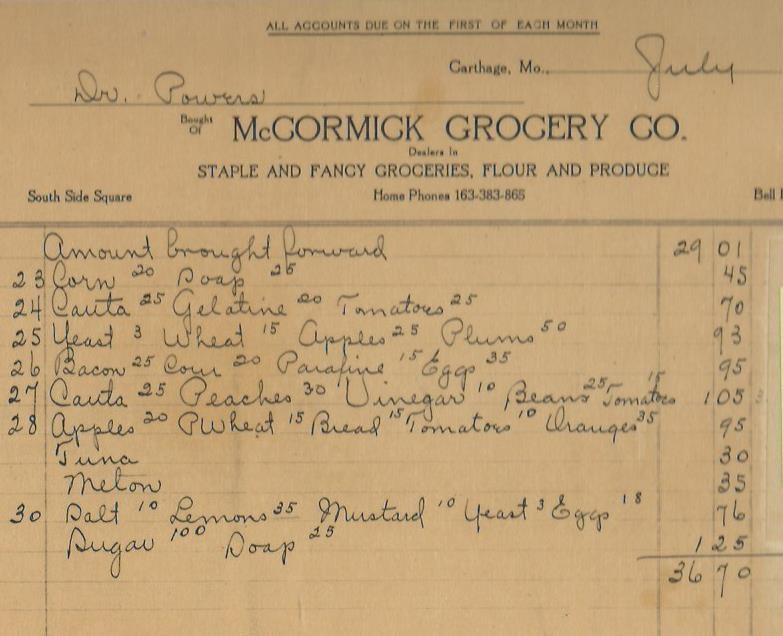 ALL ACCOUNTS DUE ON THE FIRST OF EACH MONTH
Carthage, Mo., July
Dr. Powers
Bought Of McCORMICK GROCERY CO.
Dealers In
STAPLE AND FANCY GROCERIES, FLOUR AND PRODUCE
South Side Square Home Phones 163-383-865 Bell
Amount brought forward 29 01
23 Corn 20 Soap 25 45
24 Canta 25 Gelatine 20 Tomatoes 25 70
25 Yeast 3 Wheat 15 Apples 25 Plums 50 93
26 Bacon 25 Corn 20 Parafine 15 Eggs 35 95
27 Canta 25 Peaches 30 Vinegar 10 Beans 25 Tomatoes 15 1 05
28 Apples 20 PWheat 15 Bread 15 Tomatoes 10 Oranges 35 95
Tuna 30
Melon 35
30 Salt 10 Lemons 35 Mustard 10 Yeast 3 Eggs 18 76
Sugar 100 Soap 25 1 25
36 70